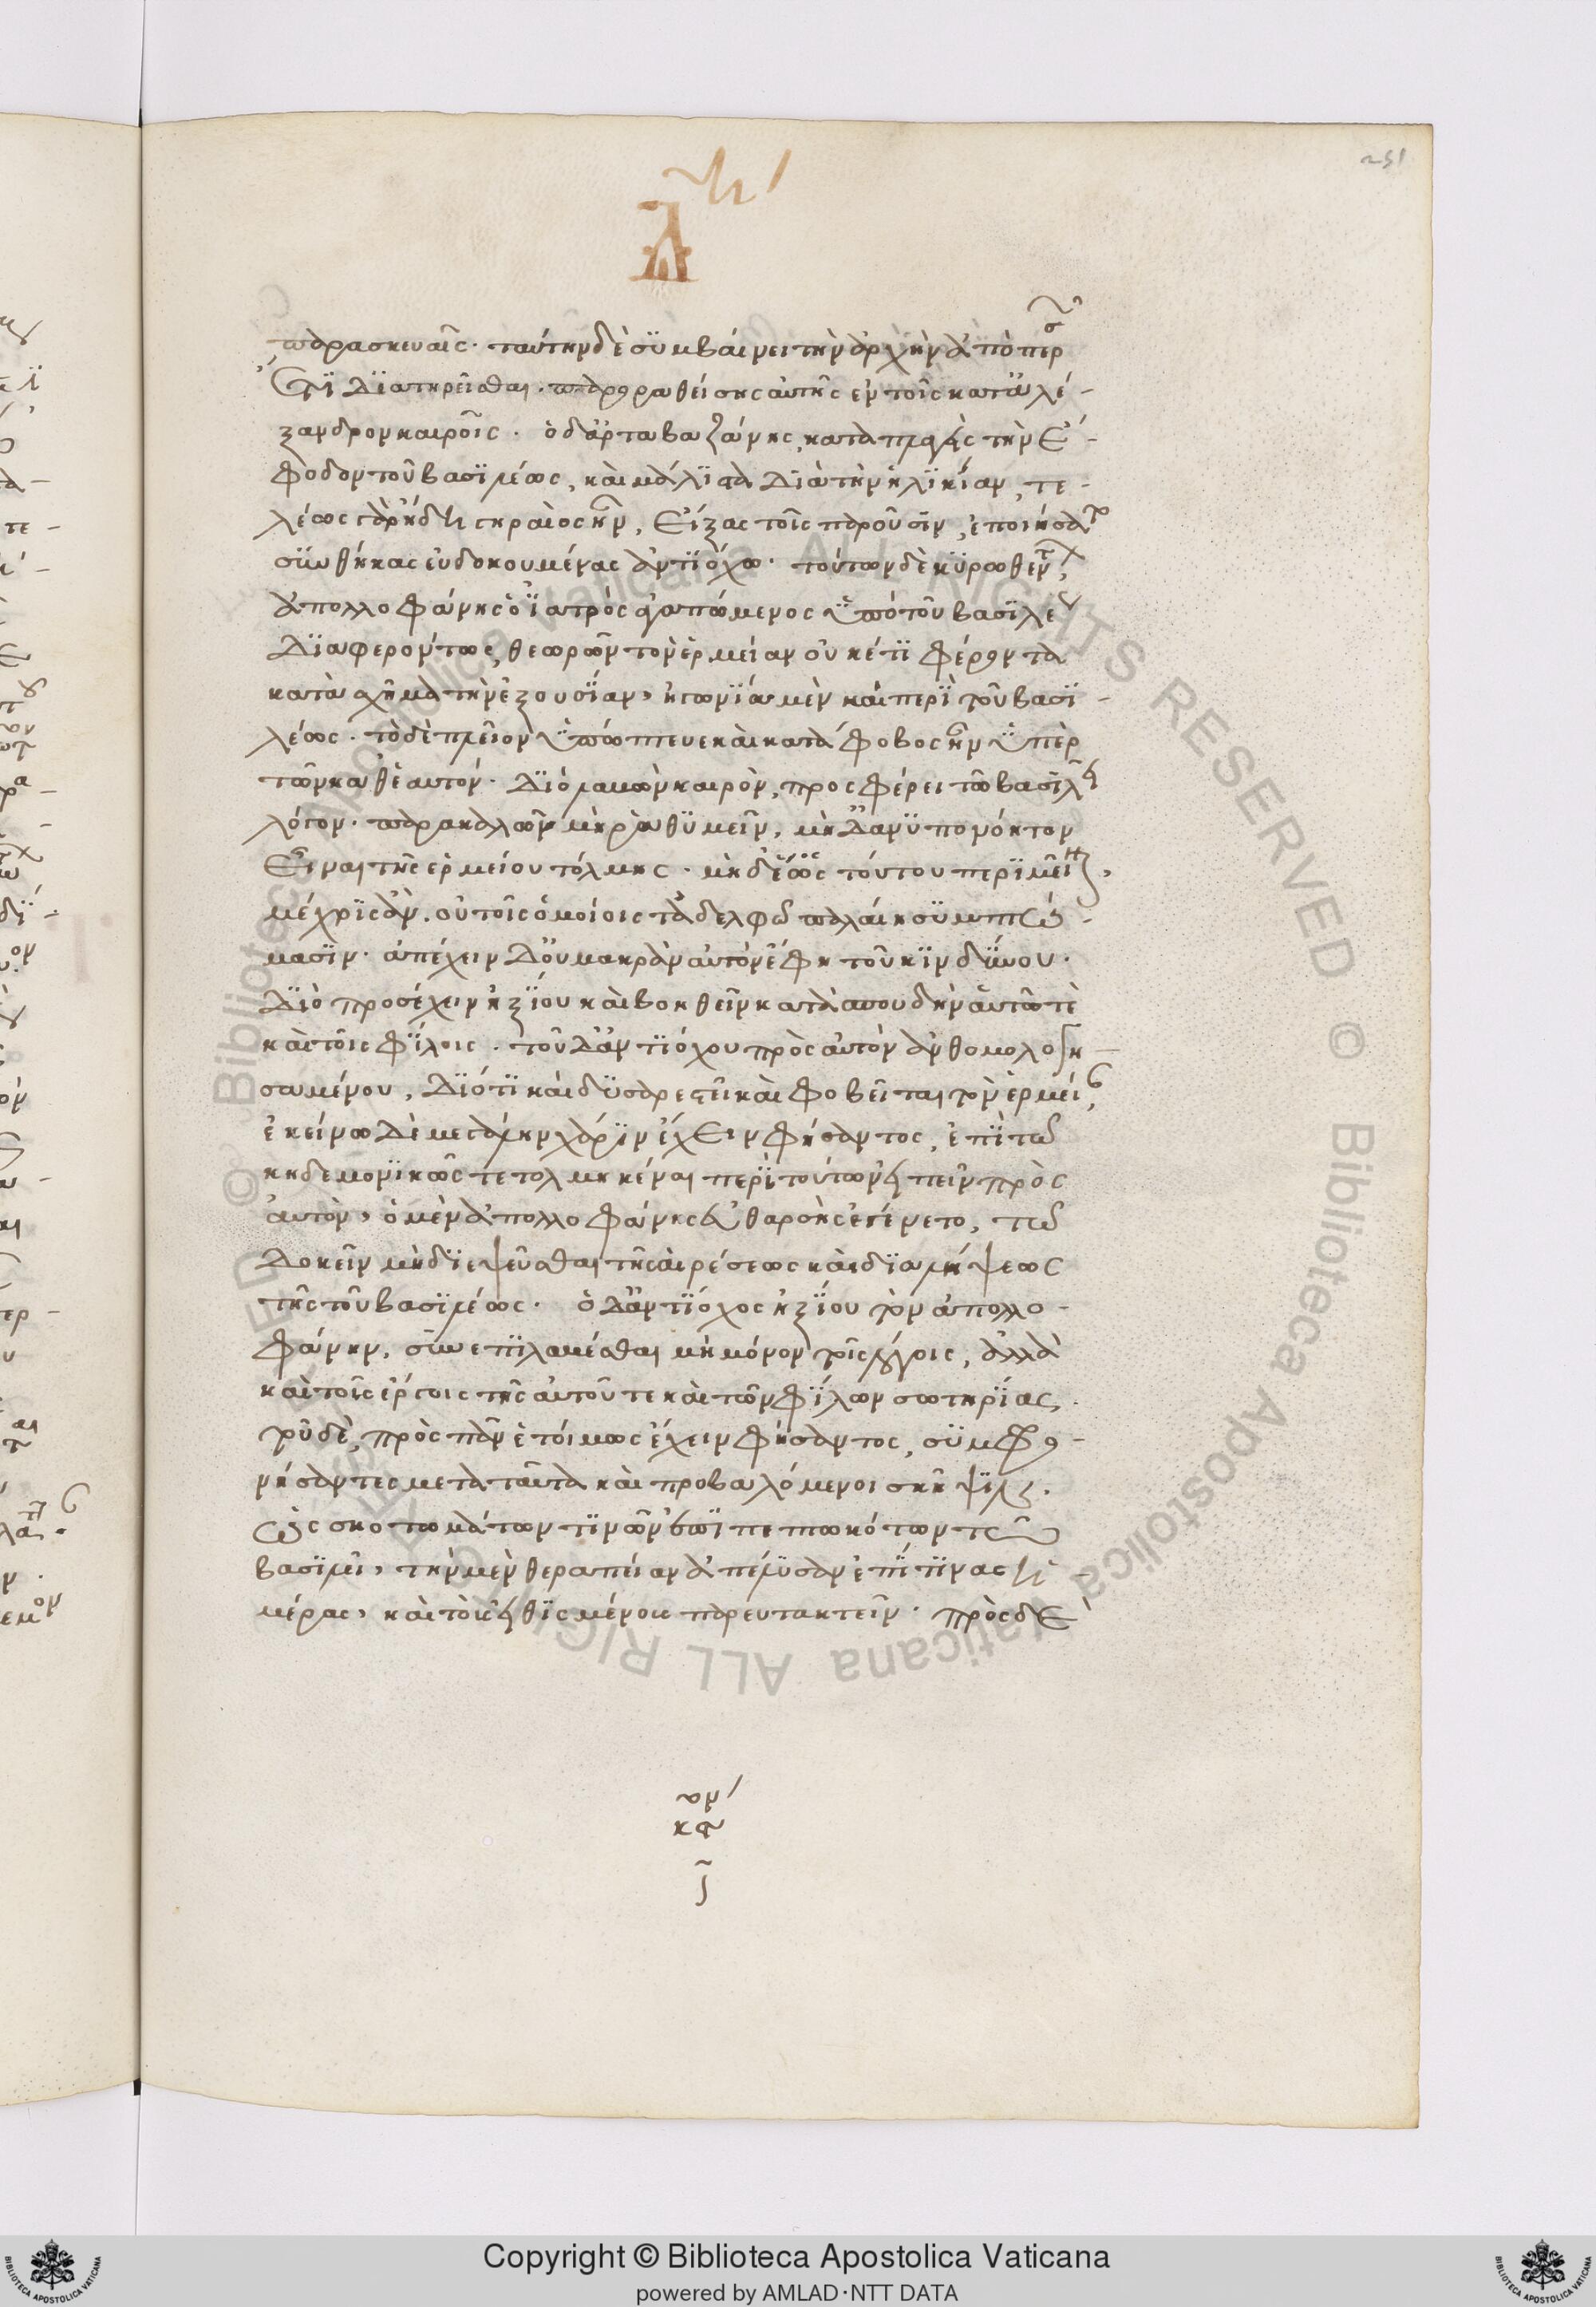 251
παρασκευαῖς· ταύτην δὲ συμβαίνει τὴν ἀρχὴν ἀπὸ περσῶν
ἔτι διατηρεῖσθαι· παροραθείσης αὐτῆς ἐν τοῖς κατ' ἀλέ-
ξανδρον καιροῖς· ὁ δ' ἀρταβαζάνης, καταπλαγεὶς τὴν ἔ-
φοδον τοῦ βασιλέως, καὶ μάλιστα διὰ τὴν ἡλικίαν, τε-
λέως γὰρ ἤδη γηραιὸς ἦν, εἴξας τοῖς παροῦσιν, ἐποιήσατο
συνθήκας εὐδοκουμένας ἀντιόχω· τούτων δὲ κυρωθέντων,
ἀπολλοφάνης ὁ ἰατρὸς ἀγαπώμενος ὑπὸ τοῦ βασιλέως
διαφερόντως, θεωρῶν τὸν ἑρμείαν οὐκέτι φέροντα
κατὰ σχῆμα τὴν ἐξουσίαν, ἠγωνία μὲν καὶ περὶ τοῦ βασι-
λέως· τὸ δὲ πλεῖον ὑπώπτευε καὶ κατάφοβος ἦν ὑπὲρ
τῶν καθ' αὑτόν· διὸ λαβὼν καιρὸν, προσφέρει τῶ βασιλεῖ
λόγον· παρακαλῶν μὴ ῥαθυμεῖν, μηδ' ἀνυπονόητον
εἶναι τῆς ἑρμείου τόλμης· μηδ' ἕως τούτου περιμεῖναι,
μέχρις ἂν· οὐ τοῖς ὁμοίοις τἀδελφῶ παλαίη συμπτώ-
μασιν· ἀπέχειν δ' οὐ μακρὰν αὐτὸν ἔφη τοῦ κινδύνου·
διὸ προσέχειν ἠξίου καὶ βοηθεῖν κατὰ σπουδὴν αὑτῶ τὲ
καὶ τοῖς φίλοις· τοῦ δ' ἀντιόχου πρὸς αὐτὸν ἀνθομολογη-
σαμένου, διότι καὶ δυσαρεστεῖ καὶ φοβεῖται τὸν ἑρμείαν,
ἐκείνω δὲ μεγάλην χάριν ἔχειν φήσαντος, ἐπὶ τῶ
κηδεμονικῶς τετολμηκέναι περὶ τούτων εἰπεῖν πρὸς
αὐτόν, ὁ μὲν ἀπολλοφάνης εὐθαρσὴς ἐγένετο, τῶ
δοκεῖν μὴ διεψεῦσθαι τῆς αἱρέσεως καὶ διαλήψεως
τῆς τοῦ βασιλέως· ὁ δ' ἀντίοχος ἠξίου τὸν ἀπολλο-
φάνην, συνεπιλαβέσθαι μὴ μόνον τοῖς λόγοις, ἀλλὰ
καὶ τοῖς ἔργοις τῆς αὑτοῦ τε καὶ τῶν φίλων σωτηρίας·
τοῦ δὲ, πρὸς πᾶν ἑτοίμως ἔχειν φήσαντος, συμφρο-
νήσαντες μετὰ ταῦτα καὶ προβαλόμενοι σκῆψιν·
ὡς σκοτωμάτων τινῶν ἐπιπεπτωκότων τῶ
βασιλεῖ, τὴν μὲν θεραπείαν ἀπέλυσαν ἐπί τινας ἡ-
μέρας, καὶ τοὺς εἰθισμένους παρευτακτεῖν· πρὸς δὲ